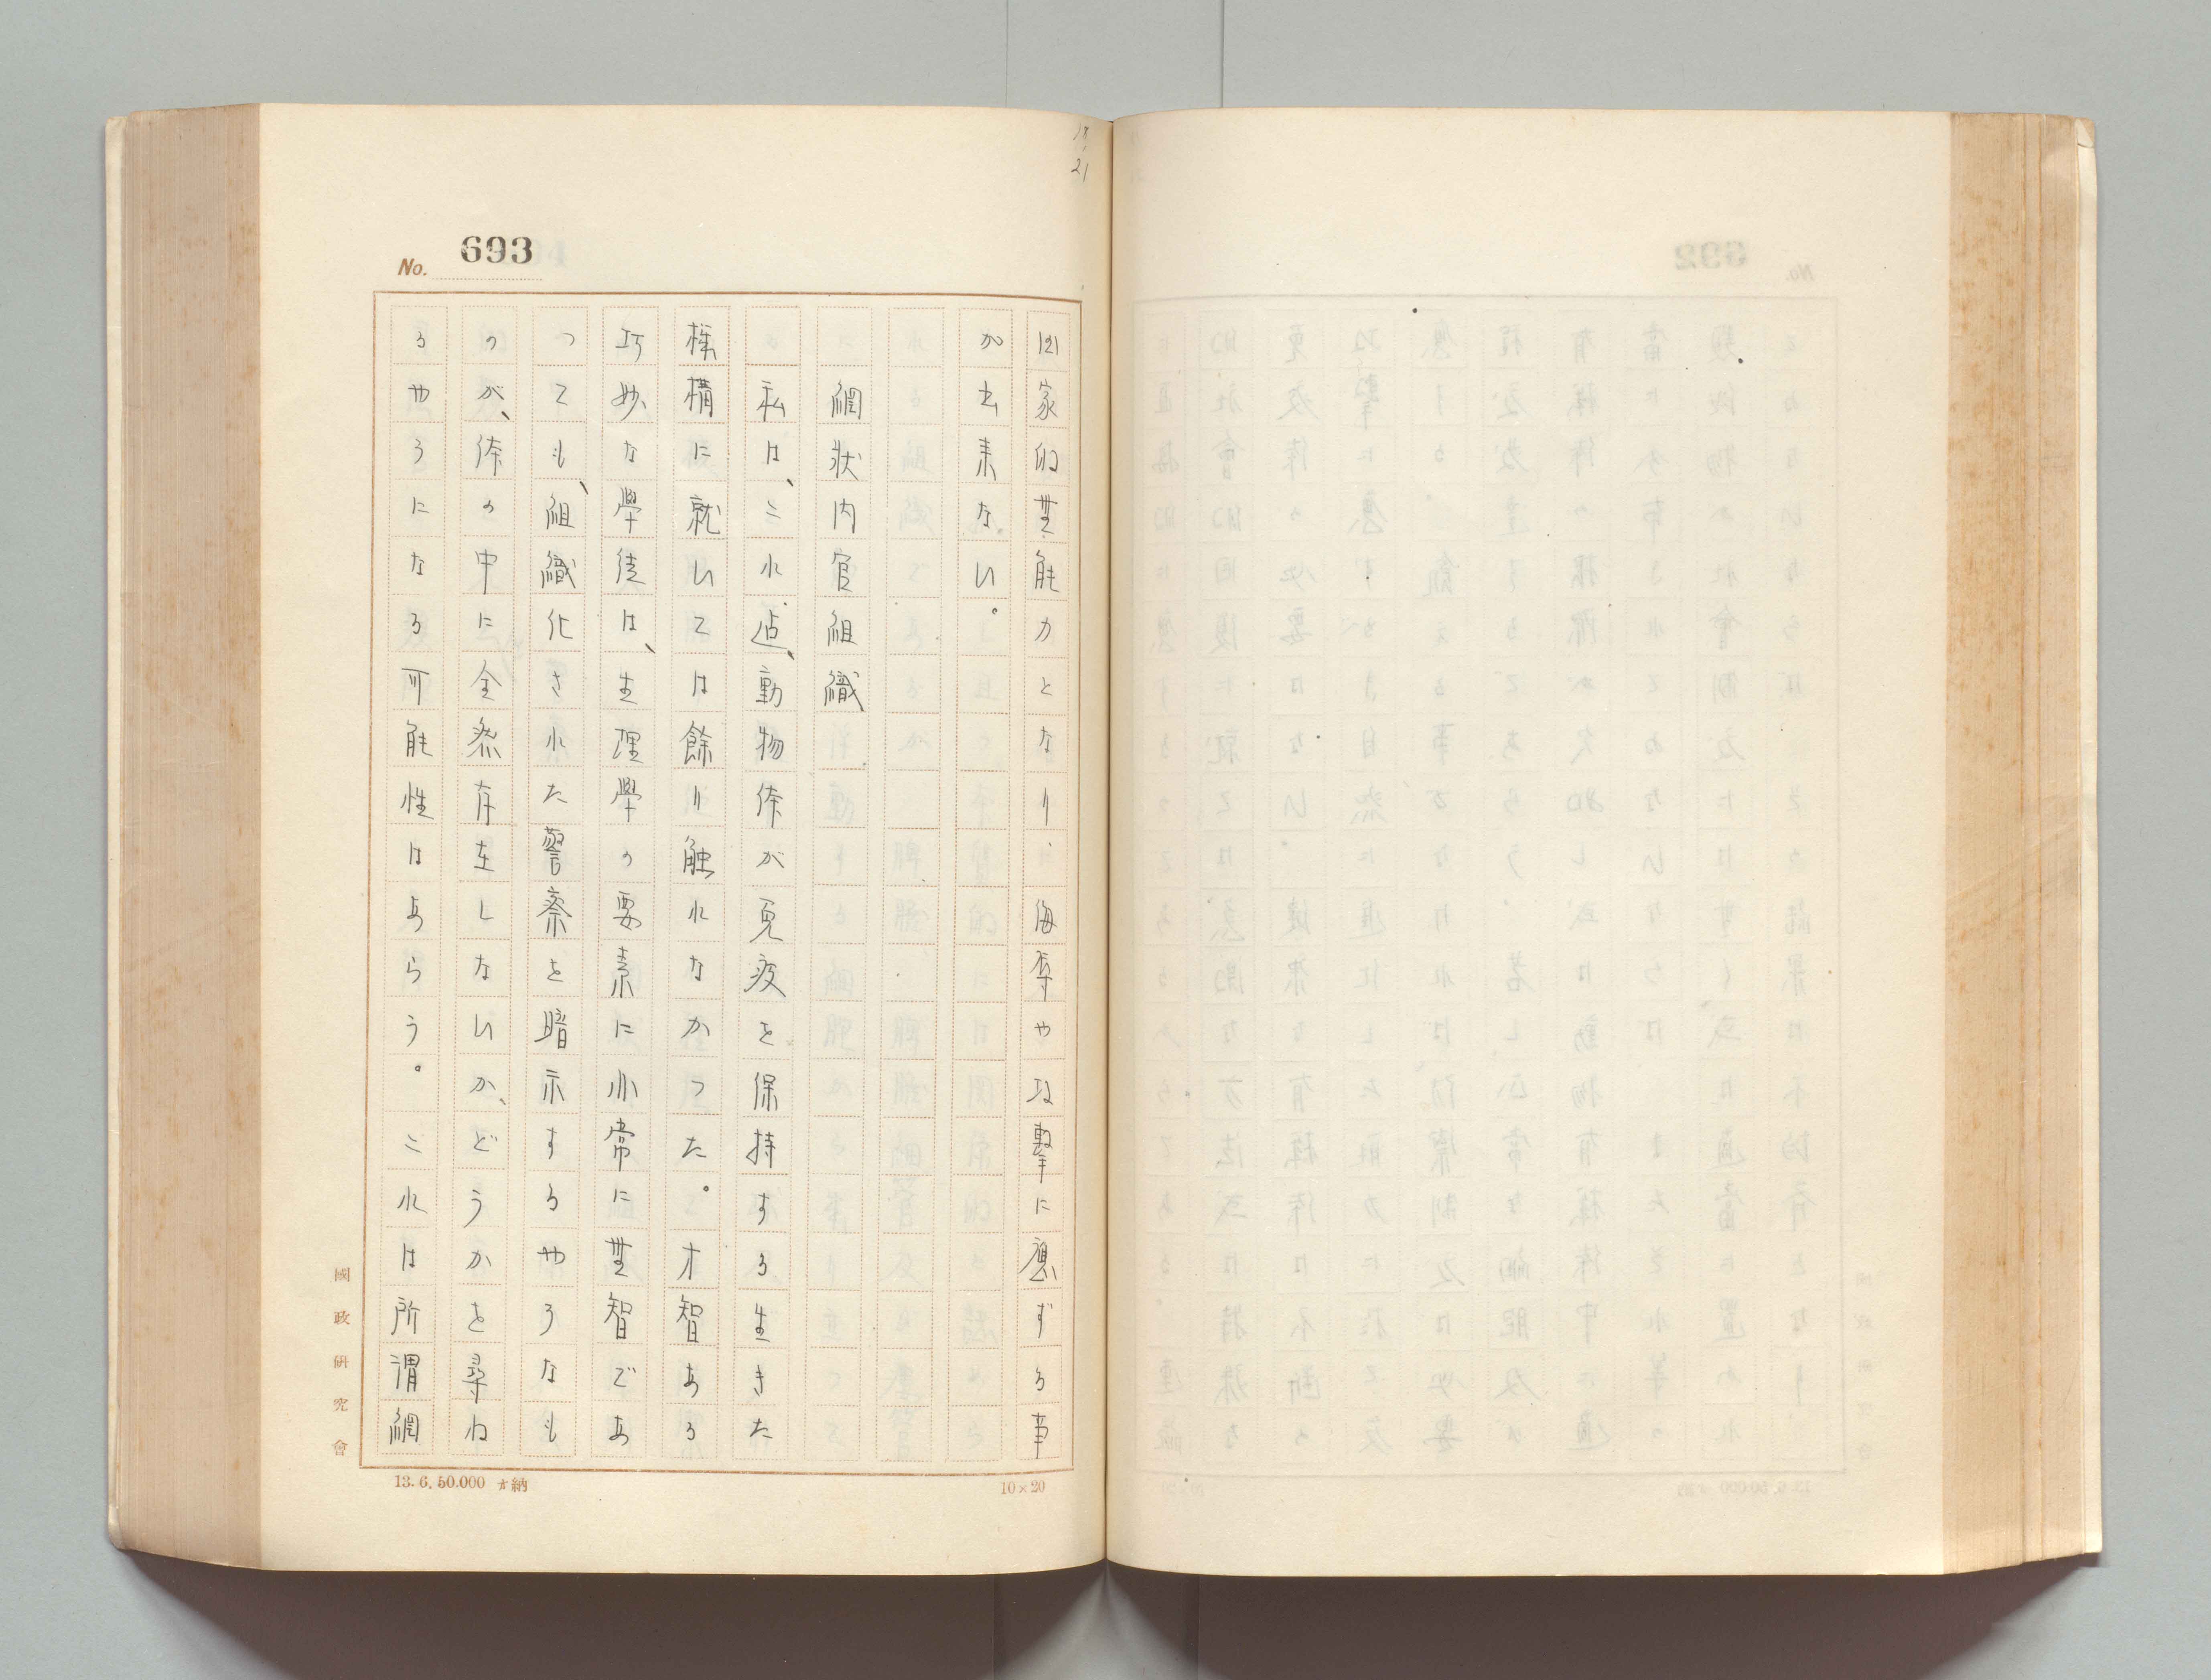 No. 693
国家的無能力となり、侮辱や攻撃に應ずる事
が出来ない。
網状内官組織
私は、これ迠、動物体が免疫を保持する生きた
機構に就いては餘り触れなかつた。才智ある
巧妙な學徒は、生理學の要素に非常に無智であ
つても、組織化された警察を暗示するやうなも
のが、体の中に全然存在しないか、どうかを尋ね
るやうになる可能性はあらう。これは所謂網
國政研究會
10×20
13.6.50.000 納